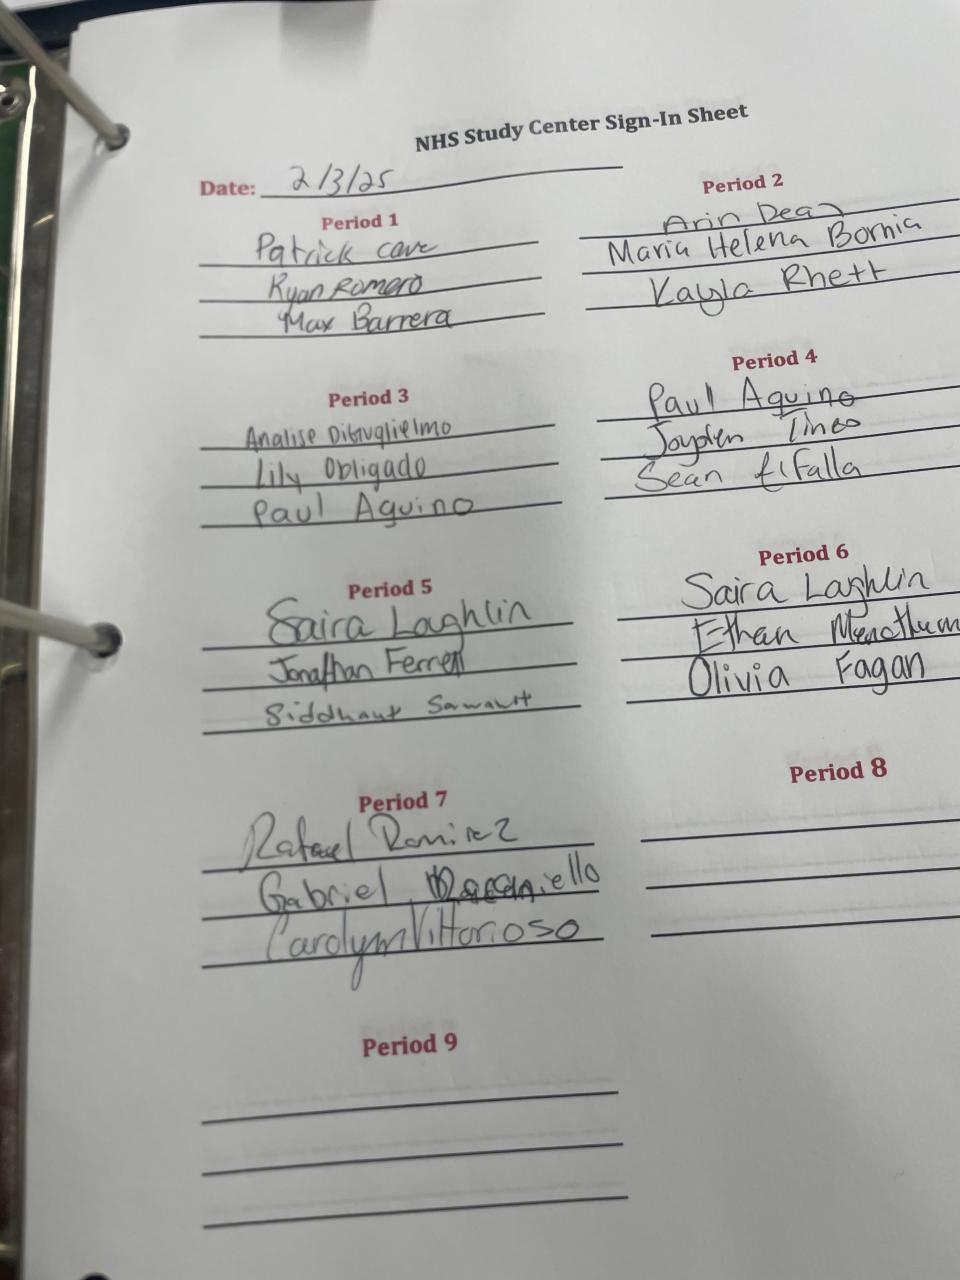 NHS Study Center Sign-In Sheet
Date: 2/3/25
Period 1
Patrick Cave
Ryan Romero
Max Barrera
Period 2
Arin Dean
Maria Helena Bornia
Kayla Rhett
Period 3
Analise DiGuglielmo
Lily Obligado
Paul Aquino
Period 4
Paul Aquino
Jayden Tineo
Sean
Period 5
Saira Laghlin
Jonathan Ferrell
Siddhant Sawant
Period 6
Saira Laghlin
Ethan
Olivia Fagan
Period 7
Rafael Ramirez
Gabriel
Carolyn Vittorioso
Period 8
Period 9